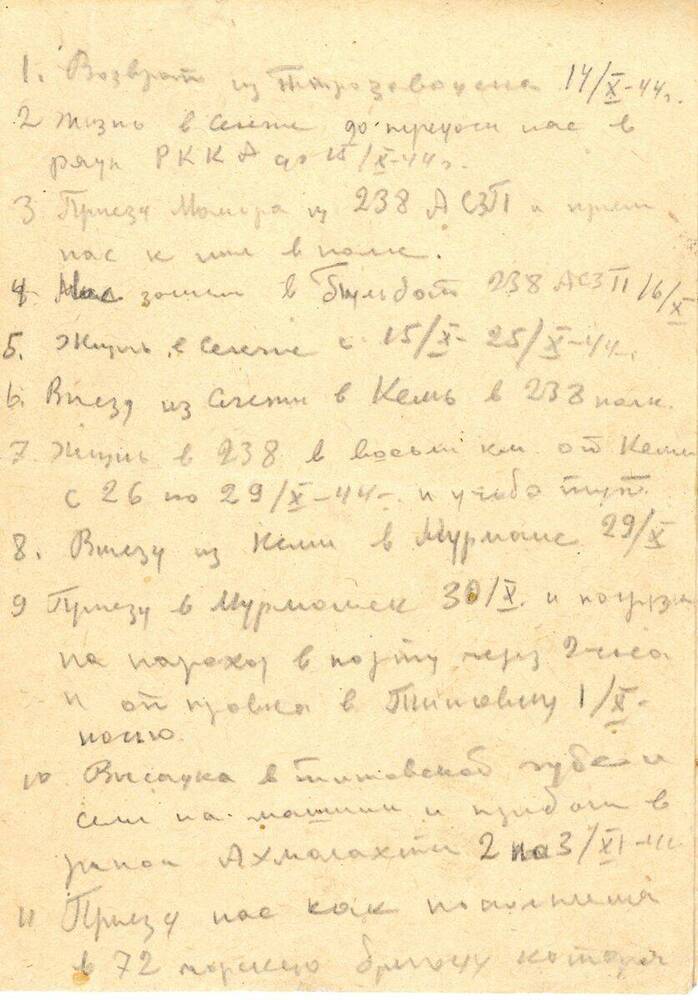 1. Возврат из Петрозаводска 14/X-44г.
2 Жизнь в Сегеже до передачи нас в
ряды РККА до 15/X-44г.
3 Приезд Майора из 238 АСЗП и прием
нас к ним в полк.
4 Нас в 238 АСЗП 16/X
5. Жизнь в Сегеже с 15/X - 25/X-44г.
6. Выезд из Сегежи в Кемь в 238 полк.
7 Жизнь в 238 в восьми км от Кеми
с 26 по 29/X-44г. и учеба тут.
8. Выезд из Кеми в Мурманс 29/X
9 Приезд в Мурманск 30/X. и погрузка
на пароход в порту через 2 часа
и от правка в Титовку 1/X-
ночью.
10 Высадка в титовской губе и
сели на машины и прибыли в
район Ахмалахти 2 на 3/XI-44
11 Приезд нас как пополнения
в 72 морскую бригаду которая